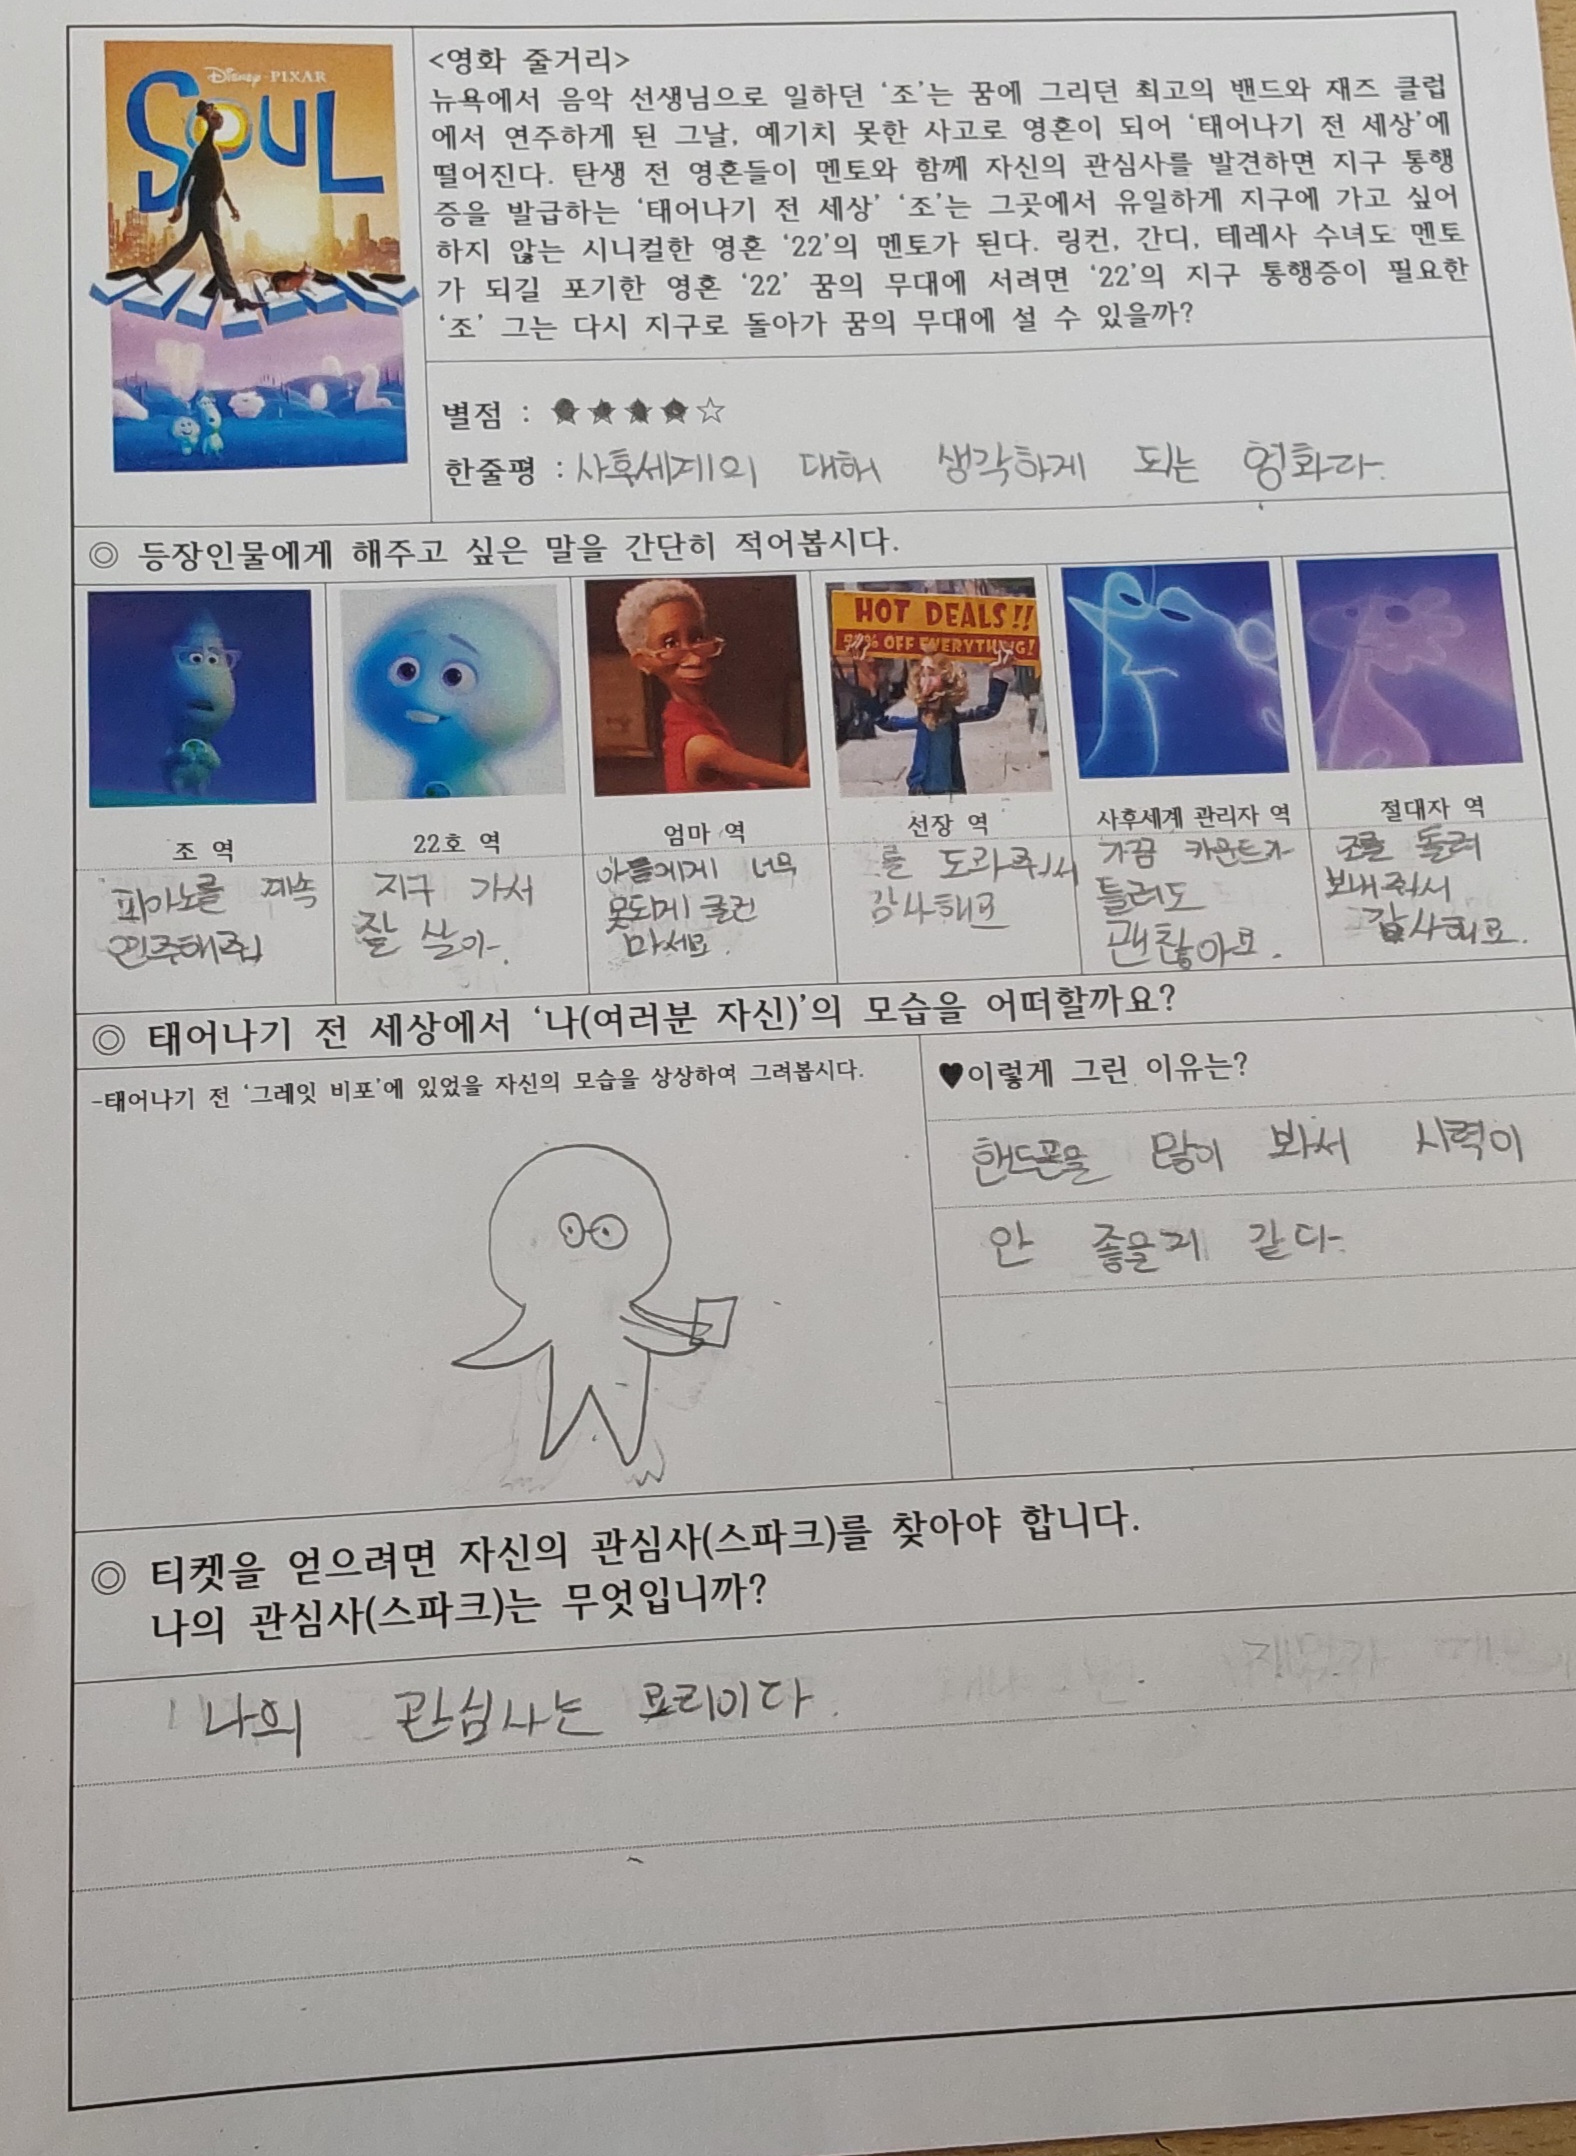 Disney · PIXAR
SOUL
<영화 줄거리>
뉴욕에서 음악 선생님으로 일하던 ‘조’는 꿈에 그리던 최고의 밴드와 재즈 클럽
에서 연주하게 된 그날, 예기치 못한 사고로 영혼이 되어 ‘태어나기 전 세상’에
떨어진다. 탄생 전 영혼들이 멘토와 함께 자신의 관심사를 발견하면 지구 통행
증을 발급하는 ‘태어나기 전 세상’ ‘조’는 그곳에서 유일하게 지구에 가고 싶어
하지 않는 시니컬한 영혼 ‘22’의 멘토가 된다. 링컨, 간디, 테레사 수녀도 멘토
가 되길 포기한 영혼 ‘22’ 꿈의 무대에 서려면 ‘22’의 지구 통행증이 필요한
‘조’ 그는 다시 지구로 돌아가 꿈의 무대에 설 수 있을까?
별점 : ★★★★☆
한줄평 : 사후세계의 대해 생각하게 되는 영화다.
◎ 등장인물에게 해주고 싶은 말을 간단히 적어봅시다.
HOT DEALS!!
% OFF EVERYTHING!
조 역
피아노를 계속
연주해줘
22호 역
지구 가서
잘 살아.
엄마 역
아들에게 너무
못되게 굴진
마세요.
선장 역
를 도와줘서
감사해요
사후세계 관리자 역
가끔 카운트가
틀려도
괜찮아요.
절대자 역
조를 돌려
보내줘서
감사해요.
◎ 태어나기 전 세상에서 ‘나(여러분 자신)’의 모습을 어떠할까요?
-태어나기 전 ‘그레잇 비포’에 있었을 자신의 모습을 상상하여 그려봅시다.
♥이렇게 그린 이유는?
핸드폰을 많이 봐서 시력이
안 좋을거 같다.
◎ 티켓을 얻으려면 자신의 관심사(스파크)를 찾아야 합니다.
나의 관심사(스파크)는 무엇입니까?
나의 관심사는 요리이다.